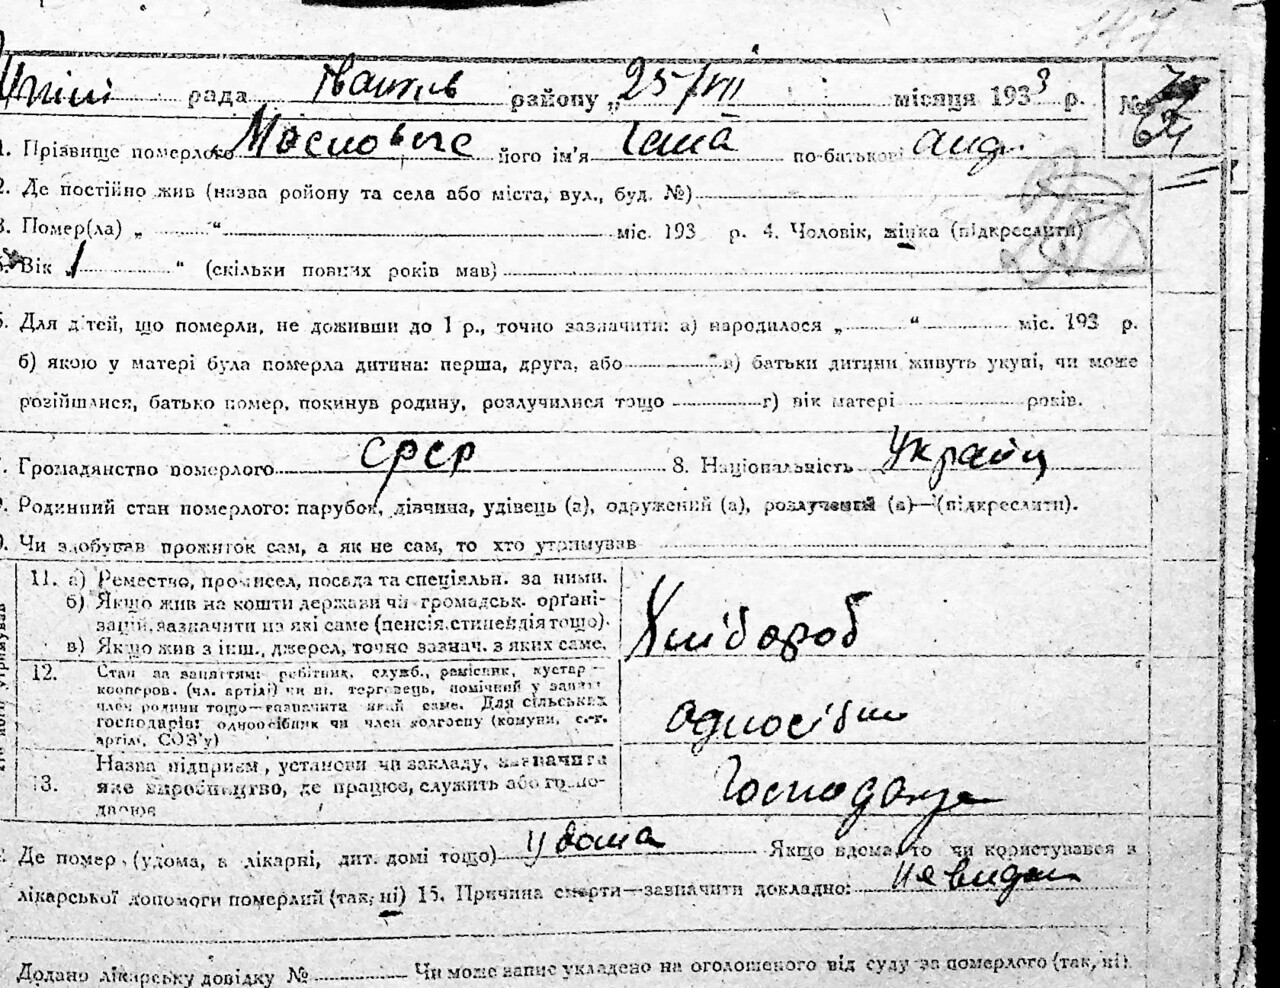 рада Іватків району „25/VII місяця 1933 р. №
1. Прізвище померлого його ім'я по-батькові анд.
2. Де постійно жив (назва ройону та села або міста, вул., буд. №)
3. Помер(ла) „ “ міс. 193 р. 4. Чоловік, жінка (підкреслити)
Вік „1 “ (скільки повних років мав)
Для дітей, що померли, не доживши до 1 р., точно зазначити: а) народилося „ “ міс. 193 р.
б) якою у матері була померла дитина: перша, друга, або в) батьки дитини живуть укупі, чи може
розійшлися, батько помер, покинув родину, розлучилися тощо г) вік матері років.
Громадянство померлого СРСР 8. Національність Україн
Родинний стан померлого: парубок, дівчина, удівець (а), одружений (а), розлучений (а)—(підкреслити).
Чи здобував прожиток сам, а як не сам, то хто утримував
11. а) Ремество, промисел, посада та спеціяльн. за ними.
б) Якщо жив на кошти держави чи громадськ. орґані-
зацій, зазначити на які саме (пенсія, стипендія тощо).
в) Якщо жив з інш., джерел, точно зазнач. з яких саме.
Хлібороб
12. Стан за заняттям: робітник, служб., ремісник, кустар—
кооперов. (чл. артілі) чи ні. торговець, помічний у занят.
член родини тощо—зазначити який саме. Для сільських
господарів: одноосібник чи член колгоспу (комуни, с.-г.
артілі, СОЗ'у)
односібни
13. Назва підприєм, установи чи закладу, зазначити
яке виробництво, де працює, служить або госпо-
дарює
Де помер (удома, в лікарні, дит. домі тощо) удома Якщо вдома, то чи користувався з
лікарської допомоги померлий (так, ні) 15. Причина смерти—зазначити докладно:
Додано лікарську довідку № Чи може запис укладено на оголошеного від суду за померлого (так, ні).